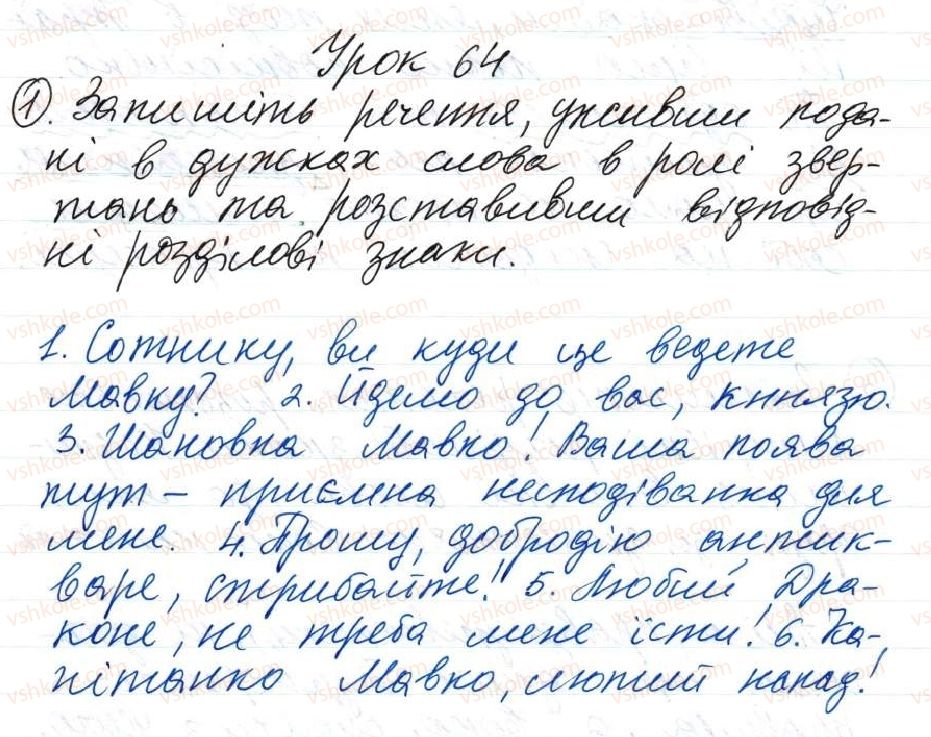 Урок 64
1. Запишіть речення, уживши пода-
ні в дужках слова в ролі звер-
тань та розставивши відповід-
ні розділові знаки.
1. Сотнику, ви куди це ведете
Мавку? 2. Йдемо до вас, Князю.
3. Шановна Мавко! Ваша поява
тут – приємна несподіванка для
мене. 4. Прошу, добродію антик-
варе, стрибайте! 5. Любий Дра-
коне, не треба мене їсти! 6. Ка-
пітанко Мавко, лютий напад!